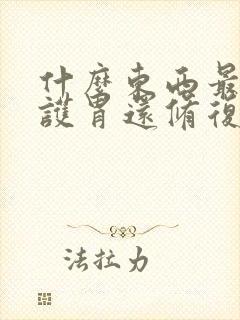 什麼東西最
護胃還脩復
法拉力